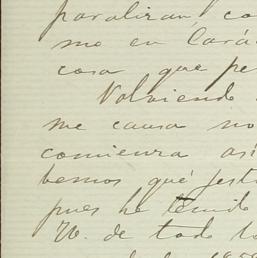 paralizan, co
mo en Cará
cosa que pe
Volviendo
me causa no
comienza así
bemos qué festi
pues he tenido
N. de todo lo